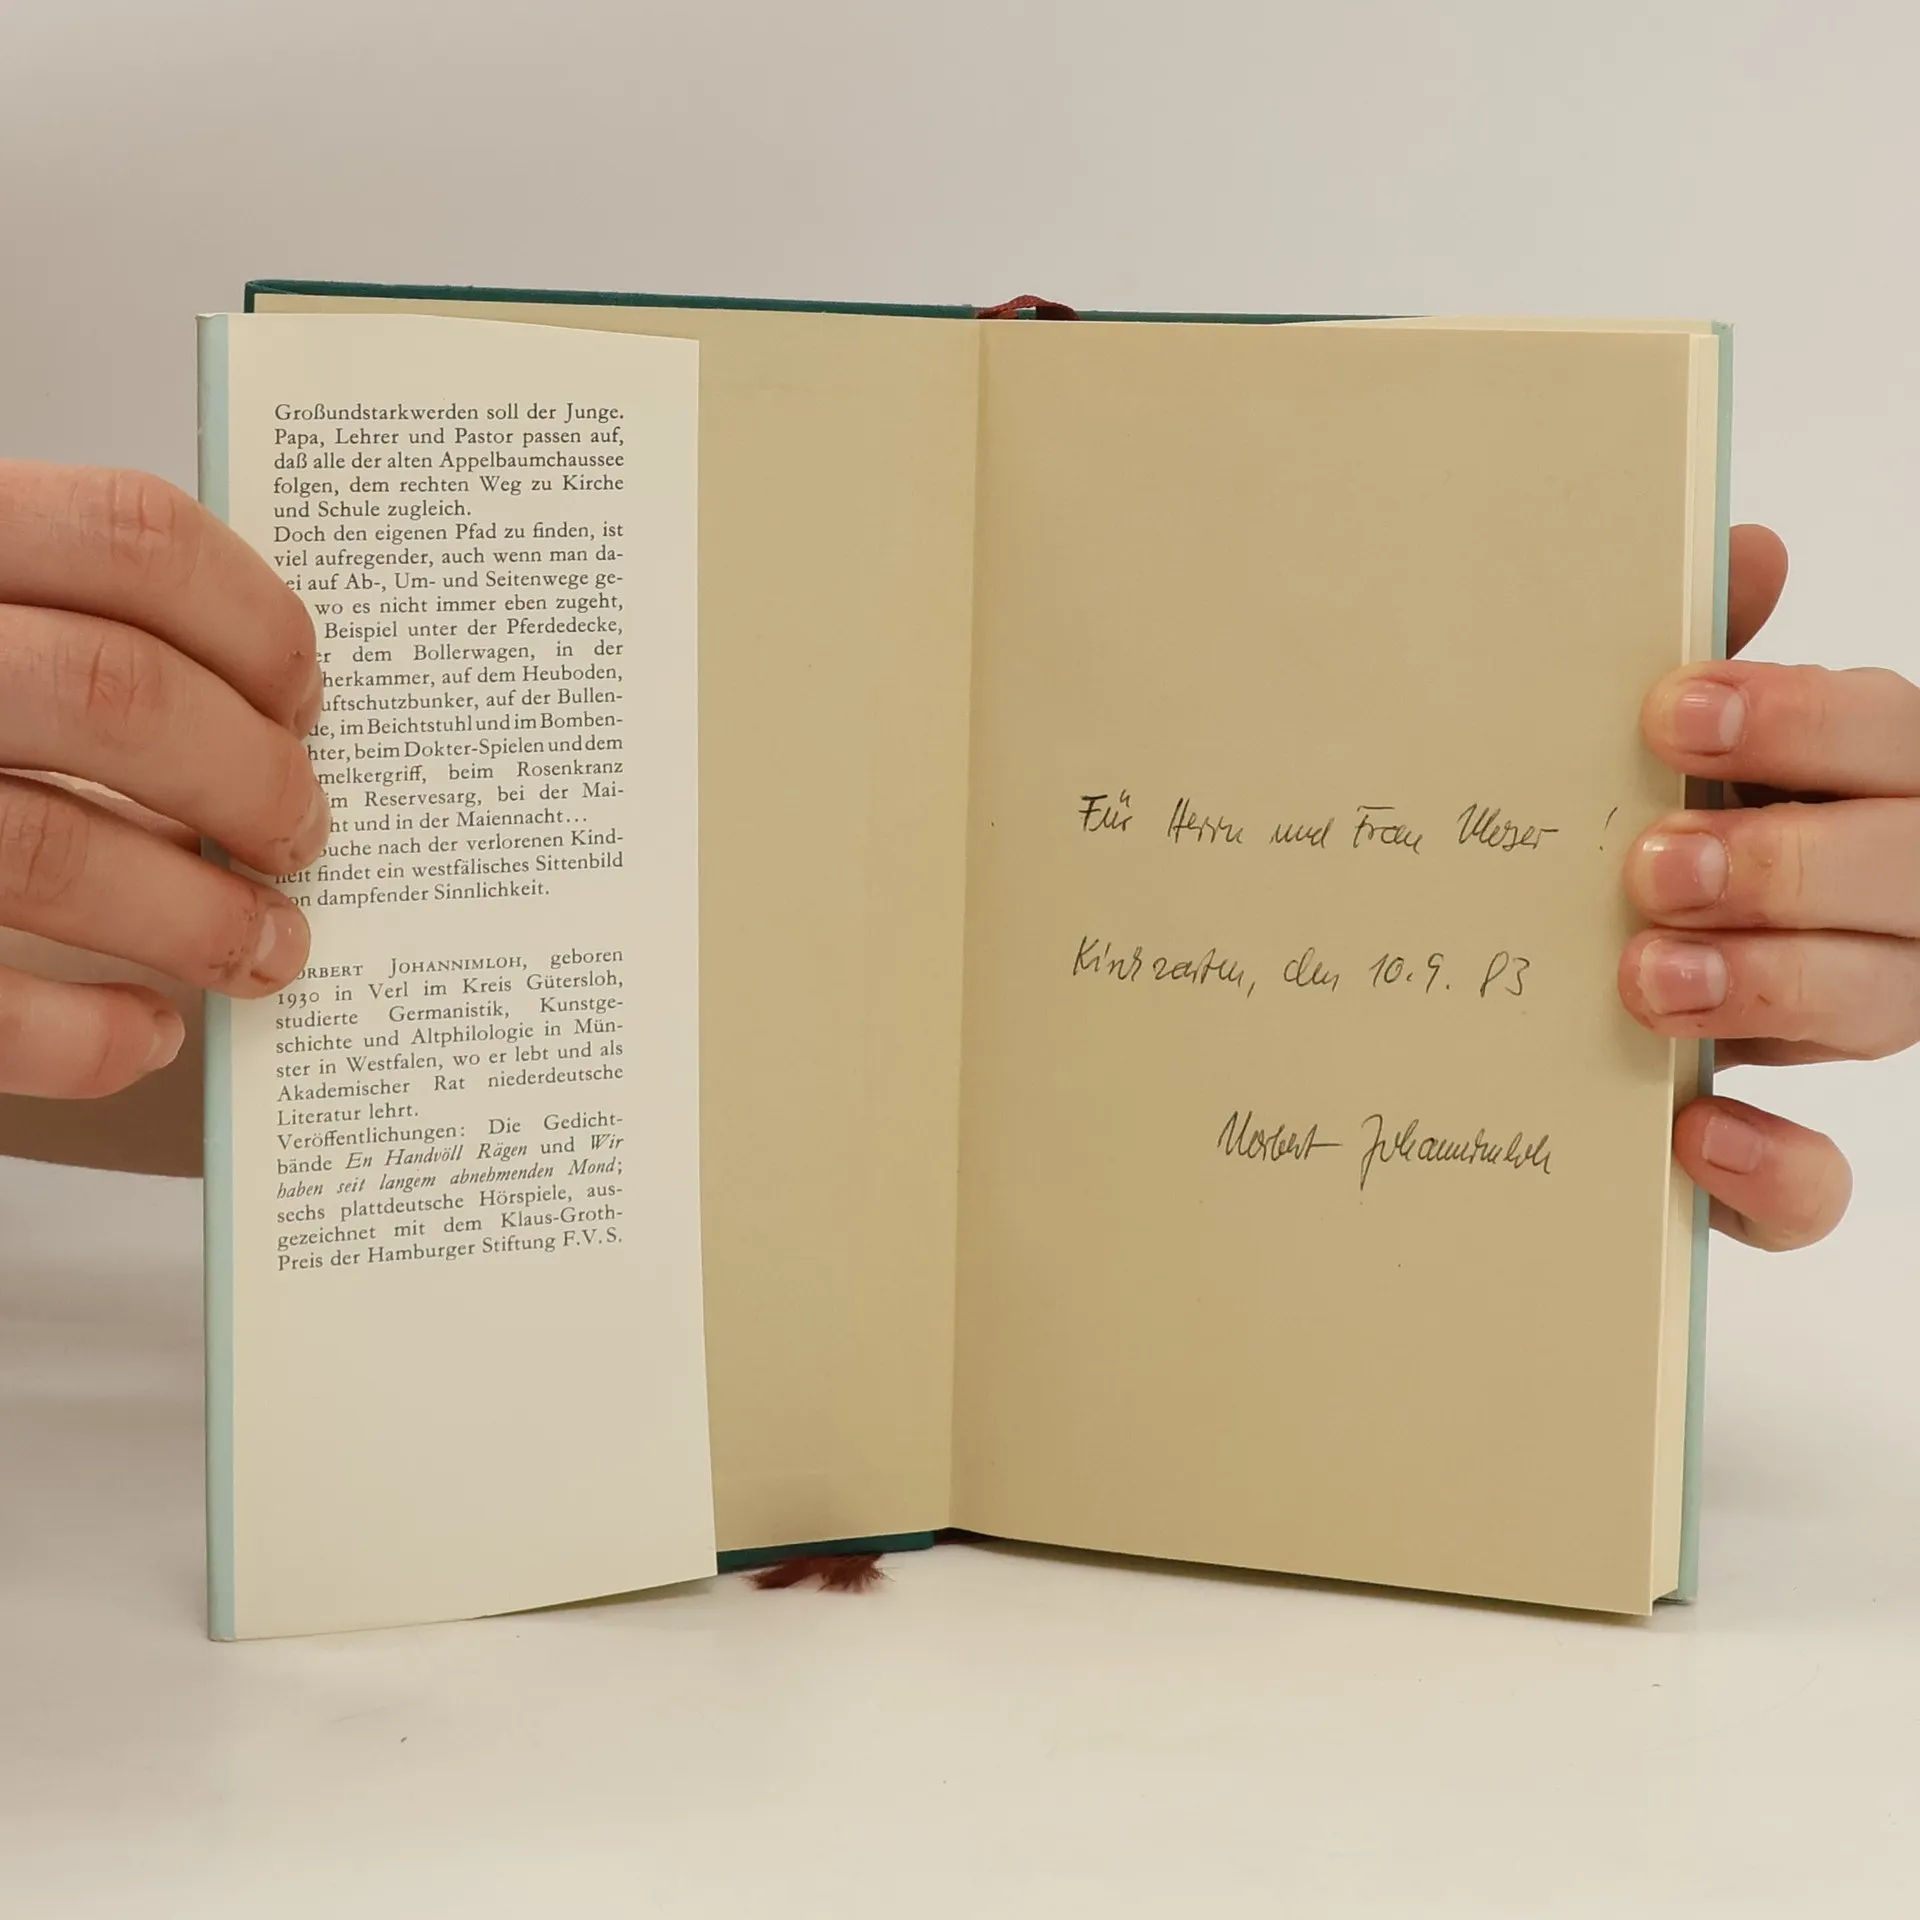 Großundstarkwerden soll der Junge.
Papa, Lehrer und Pastor passen auf,
daß alle der alten Appelbaumchaussee
folgen, dem rechten Weg zu Kirche
und Schule zugleich.
Doch den eigenen Pfad zu finden, ist
viel aufregender, auch wenn man da-
ei auf Ab-, Um- und Seitenwege ge-
wo es nicht immer eben zugeht,
Beispiel unter der Pferdedecke,
er dem Bollerwagen, in der
herkammer, auf dem Heuboden,
uftschutzbunker, auf der Bullen-
de, im Beichtstuhl und im Bomben-
hter, beim Dokter-Spielen und dem
melkergriff, beim Rosenkranz
im Reservesarg, bei der Mai-
ht und in der Maiennacht...
uche nach der verlorenen Kind-
heit findet ein westfälisches Sittenbild
on dampfender Sinnlichkeit.
ORBERT JOHANNIMLOH, geboren
1930 in Verl im Kreis Gütersloh,
studierte Germanistik, Kunstge-
schichte und Altphilologie in Mün-
ster in Westfalen, wo er lebt und als
Akademischer Rat niederdeutsche
Literatur lehrt.
Veröffentlichungen: Die Gedicht-
bände En Handvöll Rägen und Wir
haben seit langem abnehmenden Mond;
sechs plattdeutsche Hörspiele, aus-
gezeichnet mit dem Klaus-Groth-
Preis der Hamburger Stiftung F.V.S.
Für Herrn und Frau !
den 10.9.83
Norbert Johannimloh